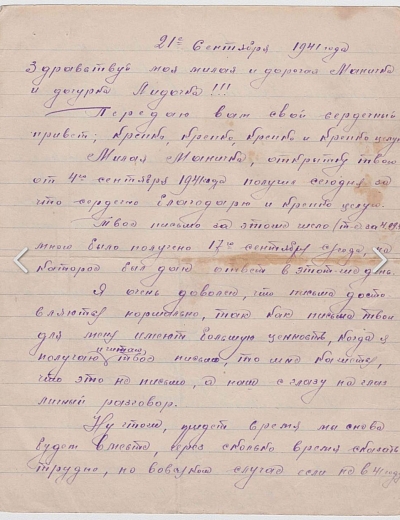 21го Сентября 1941 года
Здравствуй моя милая и дорогая Маничка
и дочурка Лидочка!!!
Передаю вам свой сердечный
привет; крепко, крепко, крепко и крепко целую
Милая Маничка, открытку твою
от 4го сентября 1941года получил сегодня за
что сердечно благодарю и крепко целую.
Твоё письмо за этоже число
мною было получено 17го сентября с/года, на
которое был дан ответ в этот-же день.
Я очень доволен, что письма доста-
вляются нормально, так как письма твои
для меня имеют большую ценность, когда я
получаю и читаю твоё письмо, то мне кажется,
что это не письмо, а наш с глазу на глаз
личный разговор.
Ну чтож, придет время мы снова
будем вместе, через сколько время сказать
трудно, но во всяком случае если не в 41 году